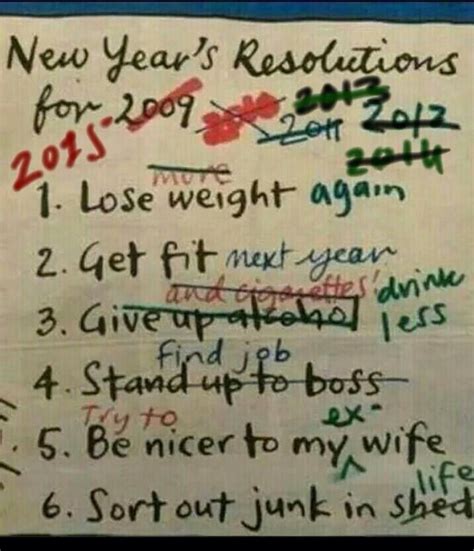 New Year's Resolutions
for 2009 2010 2011 2012 2013 2014 2015
more
1. Lose weight again
2. Get fit next year
and cigarettes' drink
3. Give up alcohol less
find job
4. Stand up to boss
Try to ex-
5. Be nicer to my wife
life
6. Sort out junk in shed